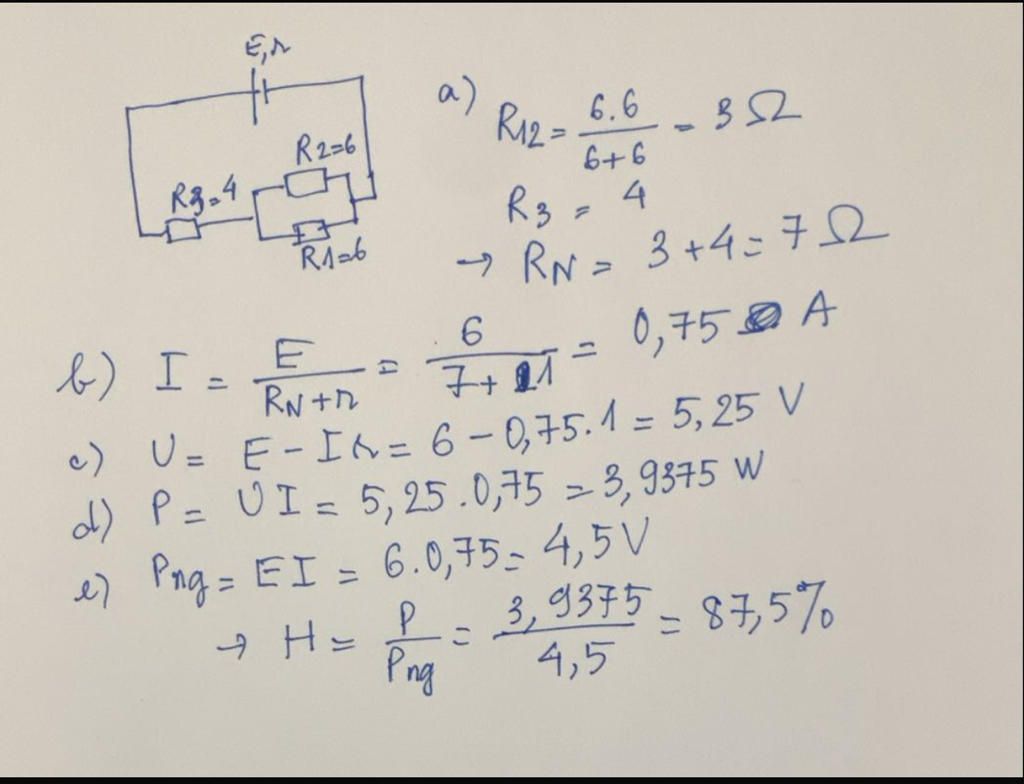 E,r
R2=6
R3=4
R1=6
a) R12 = 6.6 / 6+6 = 3 Ω
R3 = 4
→ RN = 3+4=7 Ω
b) I = E / RN+r = 6 / 7+1 = 0,75 A
c) U = E - Ir = 6 - 0,75.1 = 5,25 V
d) P = UI = 5,25.0,75 = 3,9375 W
e) Png = EI = 6.0,75 = 4,5V
→ H = P / Png = 3,9375 / 4,5 = 87,5%